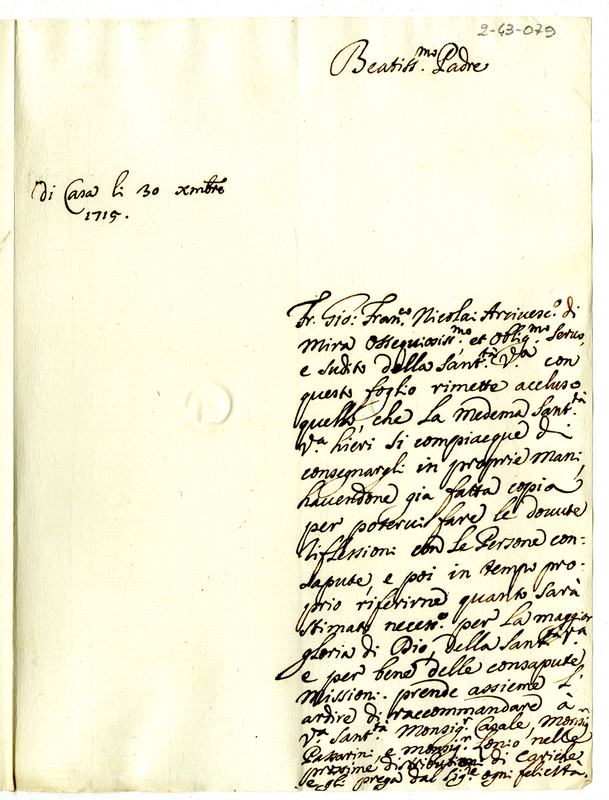 2-43-079
Beatiss.mo Padre
di Casa li 30 xmbre
1715.
Fr. Gio: Fran.co Nicolai Arcivesc.o di
Mira Ossequiosiss.mo et Oblig.mo Servo,
e sudito della Sant.tà V.a con
questo foglio rimette accluso
quello, che la medema Sant.tà
V.a hieri si compiacque di
consegnargli in proprie mani,
havendone già fatta copia
per potervi fare le dovute
riflessioni con le Persone con-
sapute, e poi in tempo pro-
prio riferirne quanto sarà
stimato necess.o per la maggior
gloria di Dio, della Sant.tà V.a
e per bene delle consapute
Missioni. prende assieme l'
ardire di raccommandare à
V.a Sant.tà Monsig.r Casale, Monsig.r
Passarini, e Monsig.r nelle
prossime distributioni di Cariche
e gli prega dal Sig.re ogni felicità.